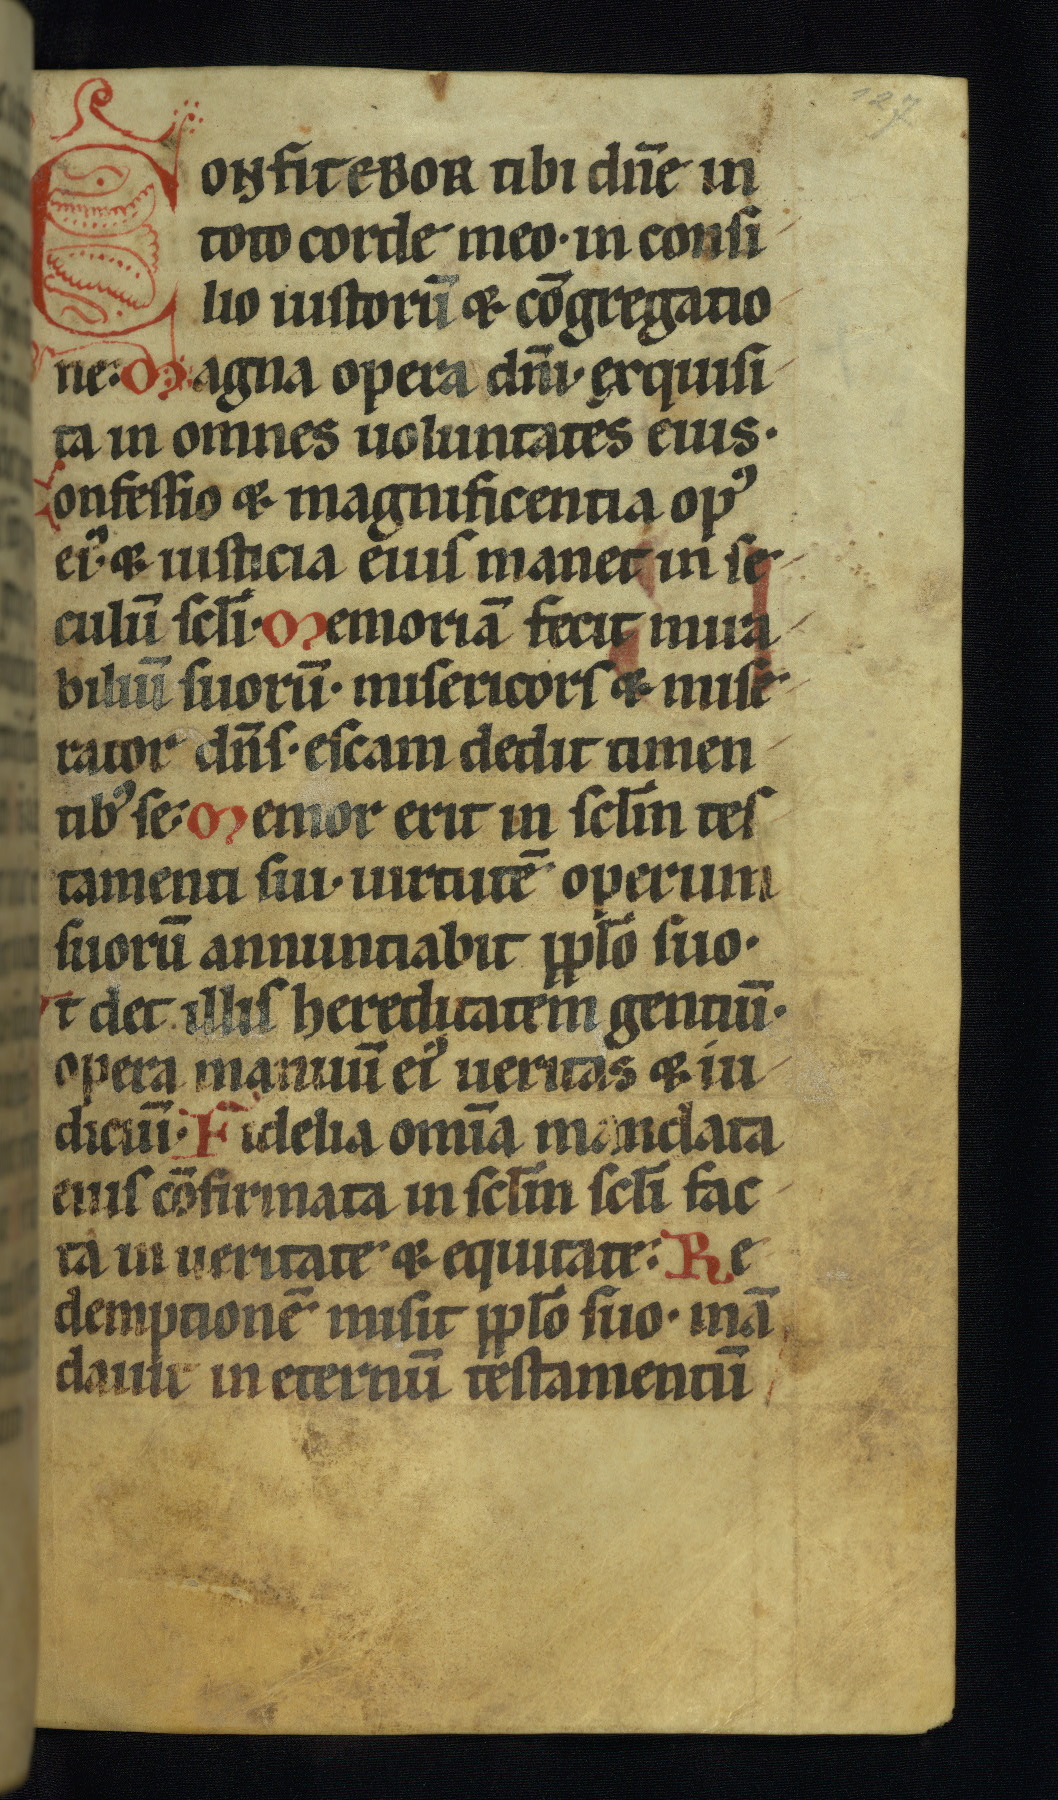 127
CONFITEBOR tibi dn̄e in
toto corde meo· in consi
lio iustorū & cōgregatio
ne· Magna opera dn̄i· exquisi
ta in omnes uoluntates eius·
Confessio & magnificentia opꝰ
eiꝰ· & iusticia eius manet in se
culū scl̄i· Memoriā fecit mira
biliū suorū· misericors & mise
rator dn̄s· escam dedit timen
tibꝰ se· Memor erit in scl̄m tes
tamenti sui· uirtutē operum
suorū annuntiabit ppl̄o suo·
Vt det illis hereditatem gentiū·
opera manuū eiꝰ ueritas & iu
diciū· Fidelia omīa mandata
eius cōfirmata in scl̄m scl̄i fac
ta in ueritate & equitate· Re
demptionē misit ppl̄o suo· mā
dauit in eternū testamentū